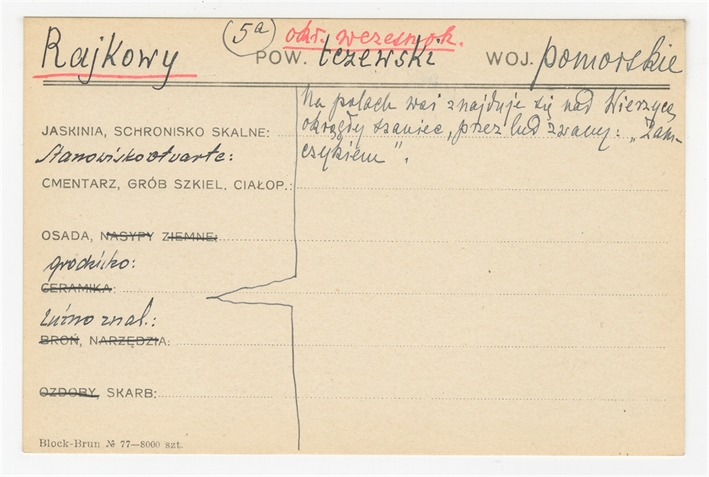 (5a) okr. wczesnok.
Rajkowy POW. tczewski WOJ. pomorskie
Na polach wsi znajduje się nad Wierzycą
JASKINIA, SCHRONISKO SKALNE: okrągły szaniec, przez lud zwany: „Zam-
Stanowisko otwarte: czykiem”.
CMENTARZ, GRÓB SZKIEL. CIAŁOP.:
OSADA, NASYPY ZIEMNE:
grodzisko:
CERAMIKA:
Luźno znal.:
BROŃ, NARZĘDZIA:
OZDOBY, SKARB:
Block-Brun № 77—8000 szt.